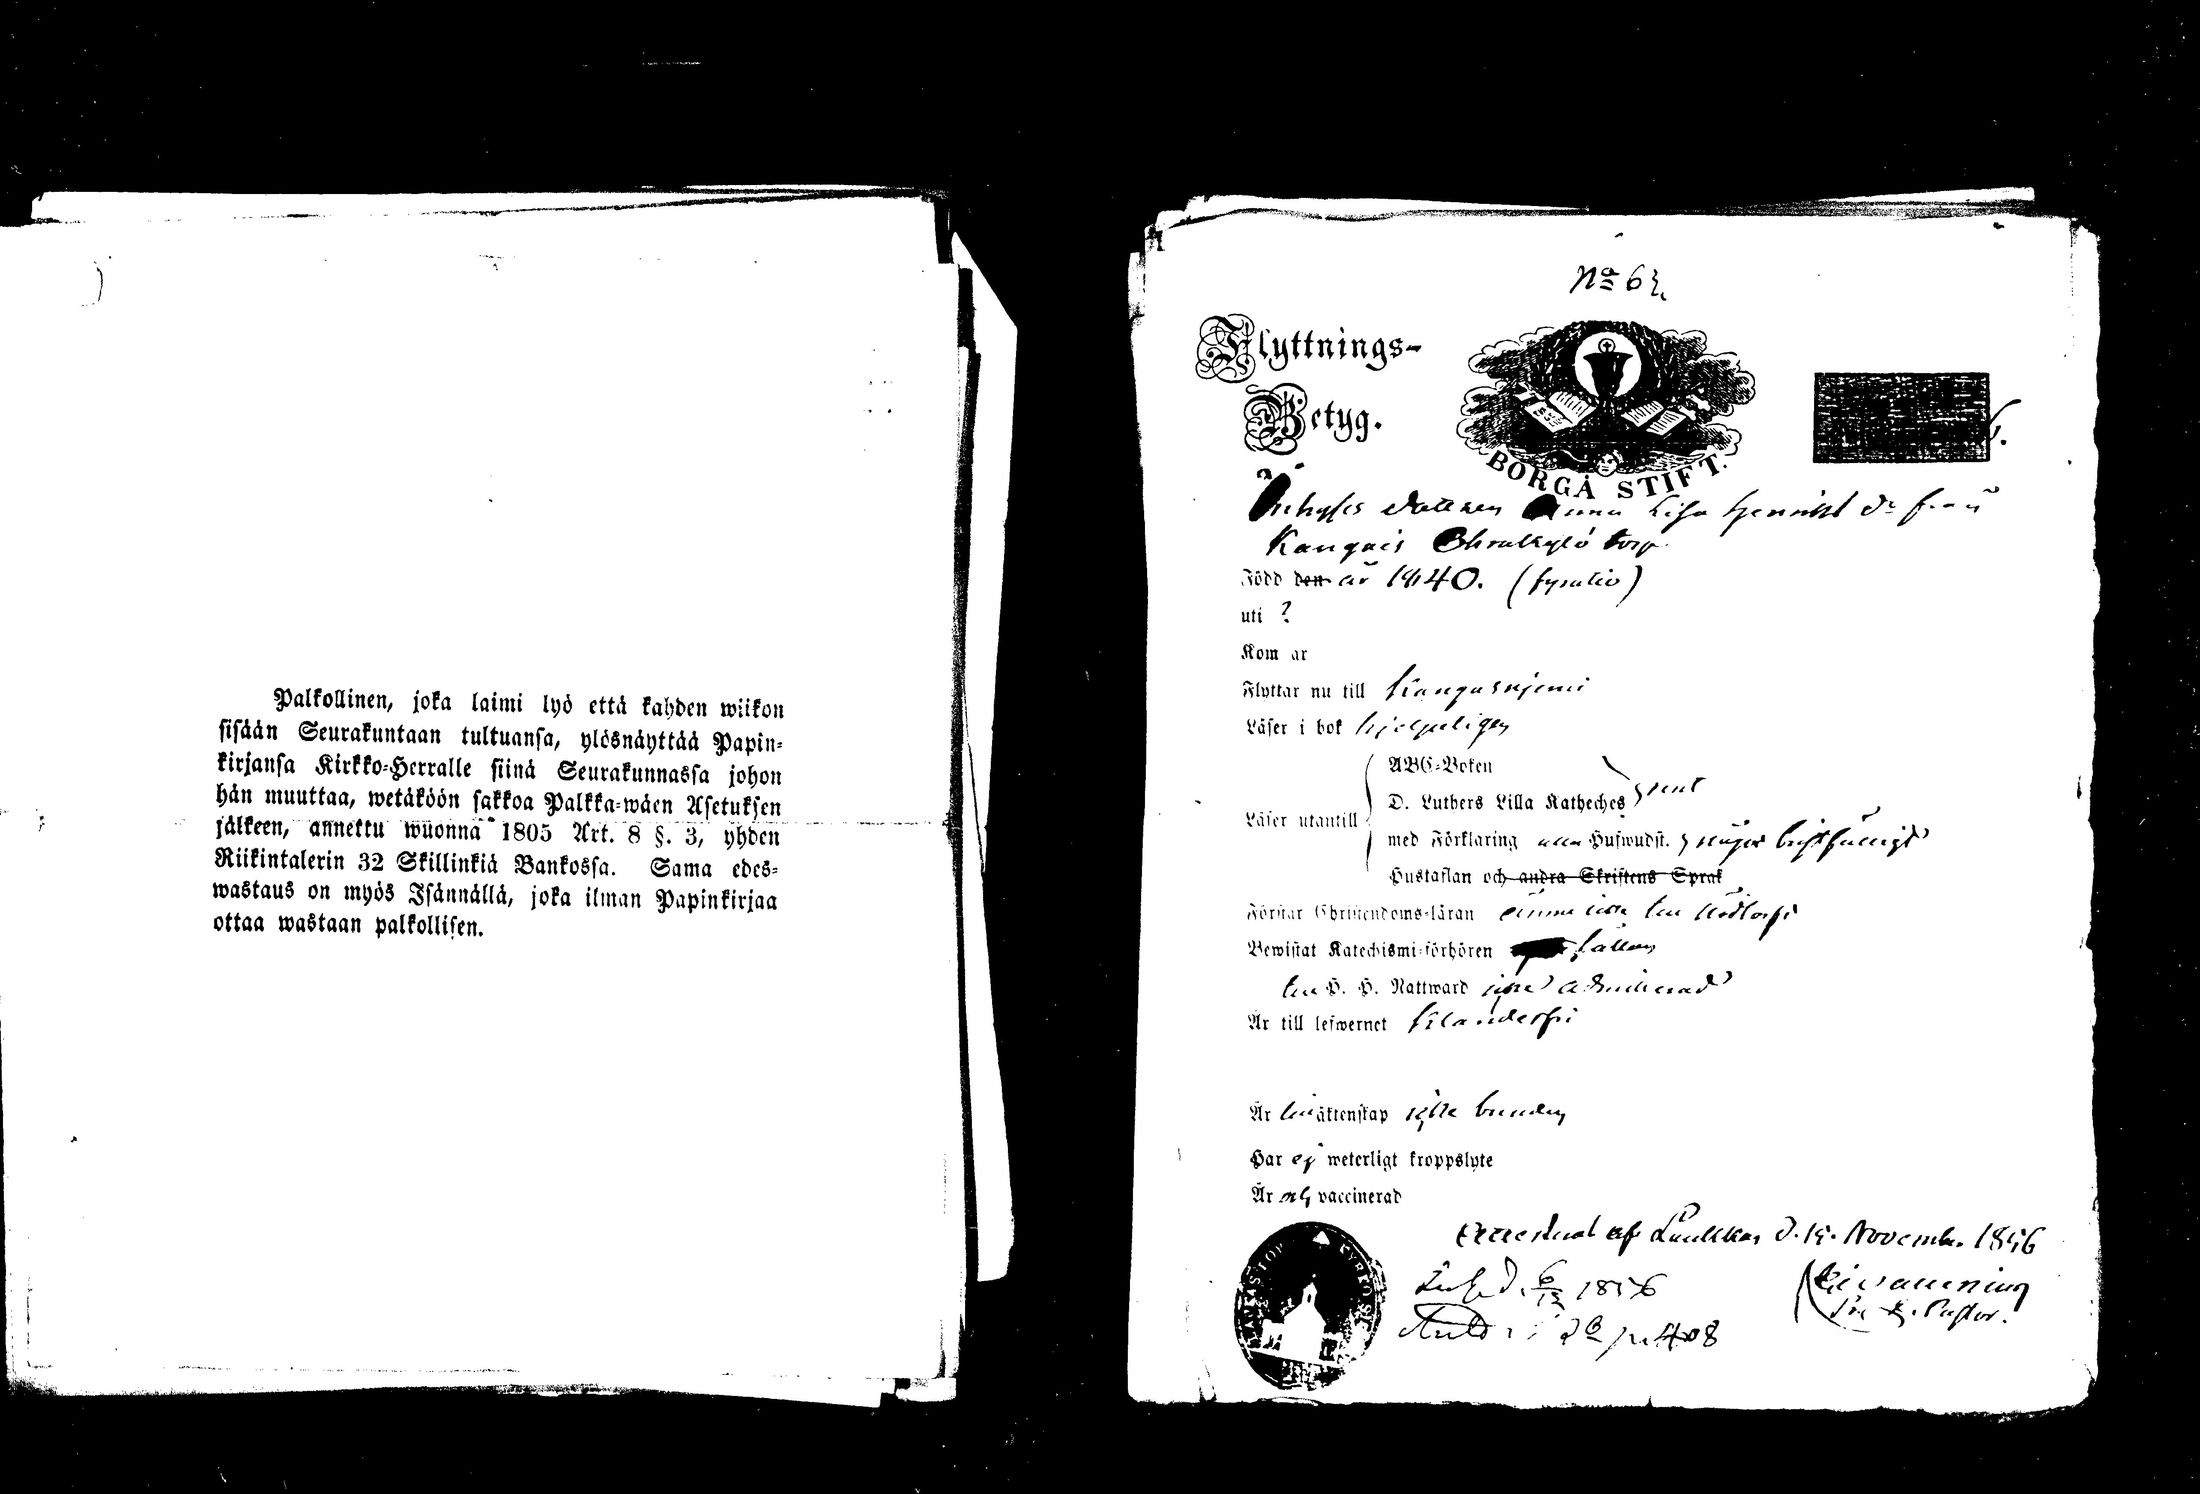 Palkollinen, joka laimi lyö että kahden wiikon
sisään Seurakuntaan tultuansa, ylösnäyttää Papin-
kirjansa Kirkko-Herralle siinä Seurakunnassa johon
hän muuttaa, wetäköön sakkoa Palkka-wäen Asetuksen
jälkeen, annettu wuonna 1805 Art. 8 §. 3, yhden
Riikintalerin 32 Skillinkiä Bankossa. Sama edes-
wastaus on myös Isännällä, joka ilman Papinkirjaa
ottaa wastaan palkollisen.
No 63
Flyttnings-
Betyg.
BORGÅ STIFT.
dottren Anna Lisa Henriksd:r från
Kangais torp
Född den år 1840. (fyratio)
uti ?
Kom år
Flyttar nu till Kangasniemi
Läser i bok hjelpeligen
Läser utantill
ABC-Boken
D. Luthers Lilla Katheches
rent
med Förklaring Huswudst. något bristfälligt
Hustaflan och andra Skriftens Språk
Förstår Christendoms-läran
Bewistat Katechismi-förhören
H. H. Nattward icke admitterad
Är till lefwernet klanderfri
Är till äktenskap icke bunden
Har ej weterligt kroppslyte
Är vaccinerad
Attesterat af Laukkas d. 15. November 1856
d. 6/12 1856
p. 408
Pastor.